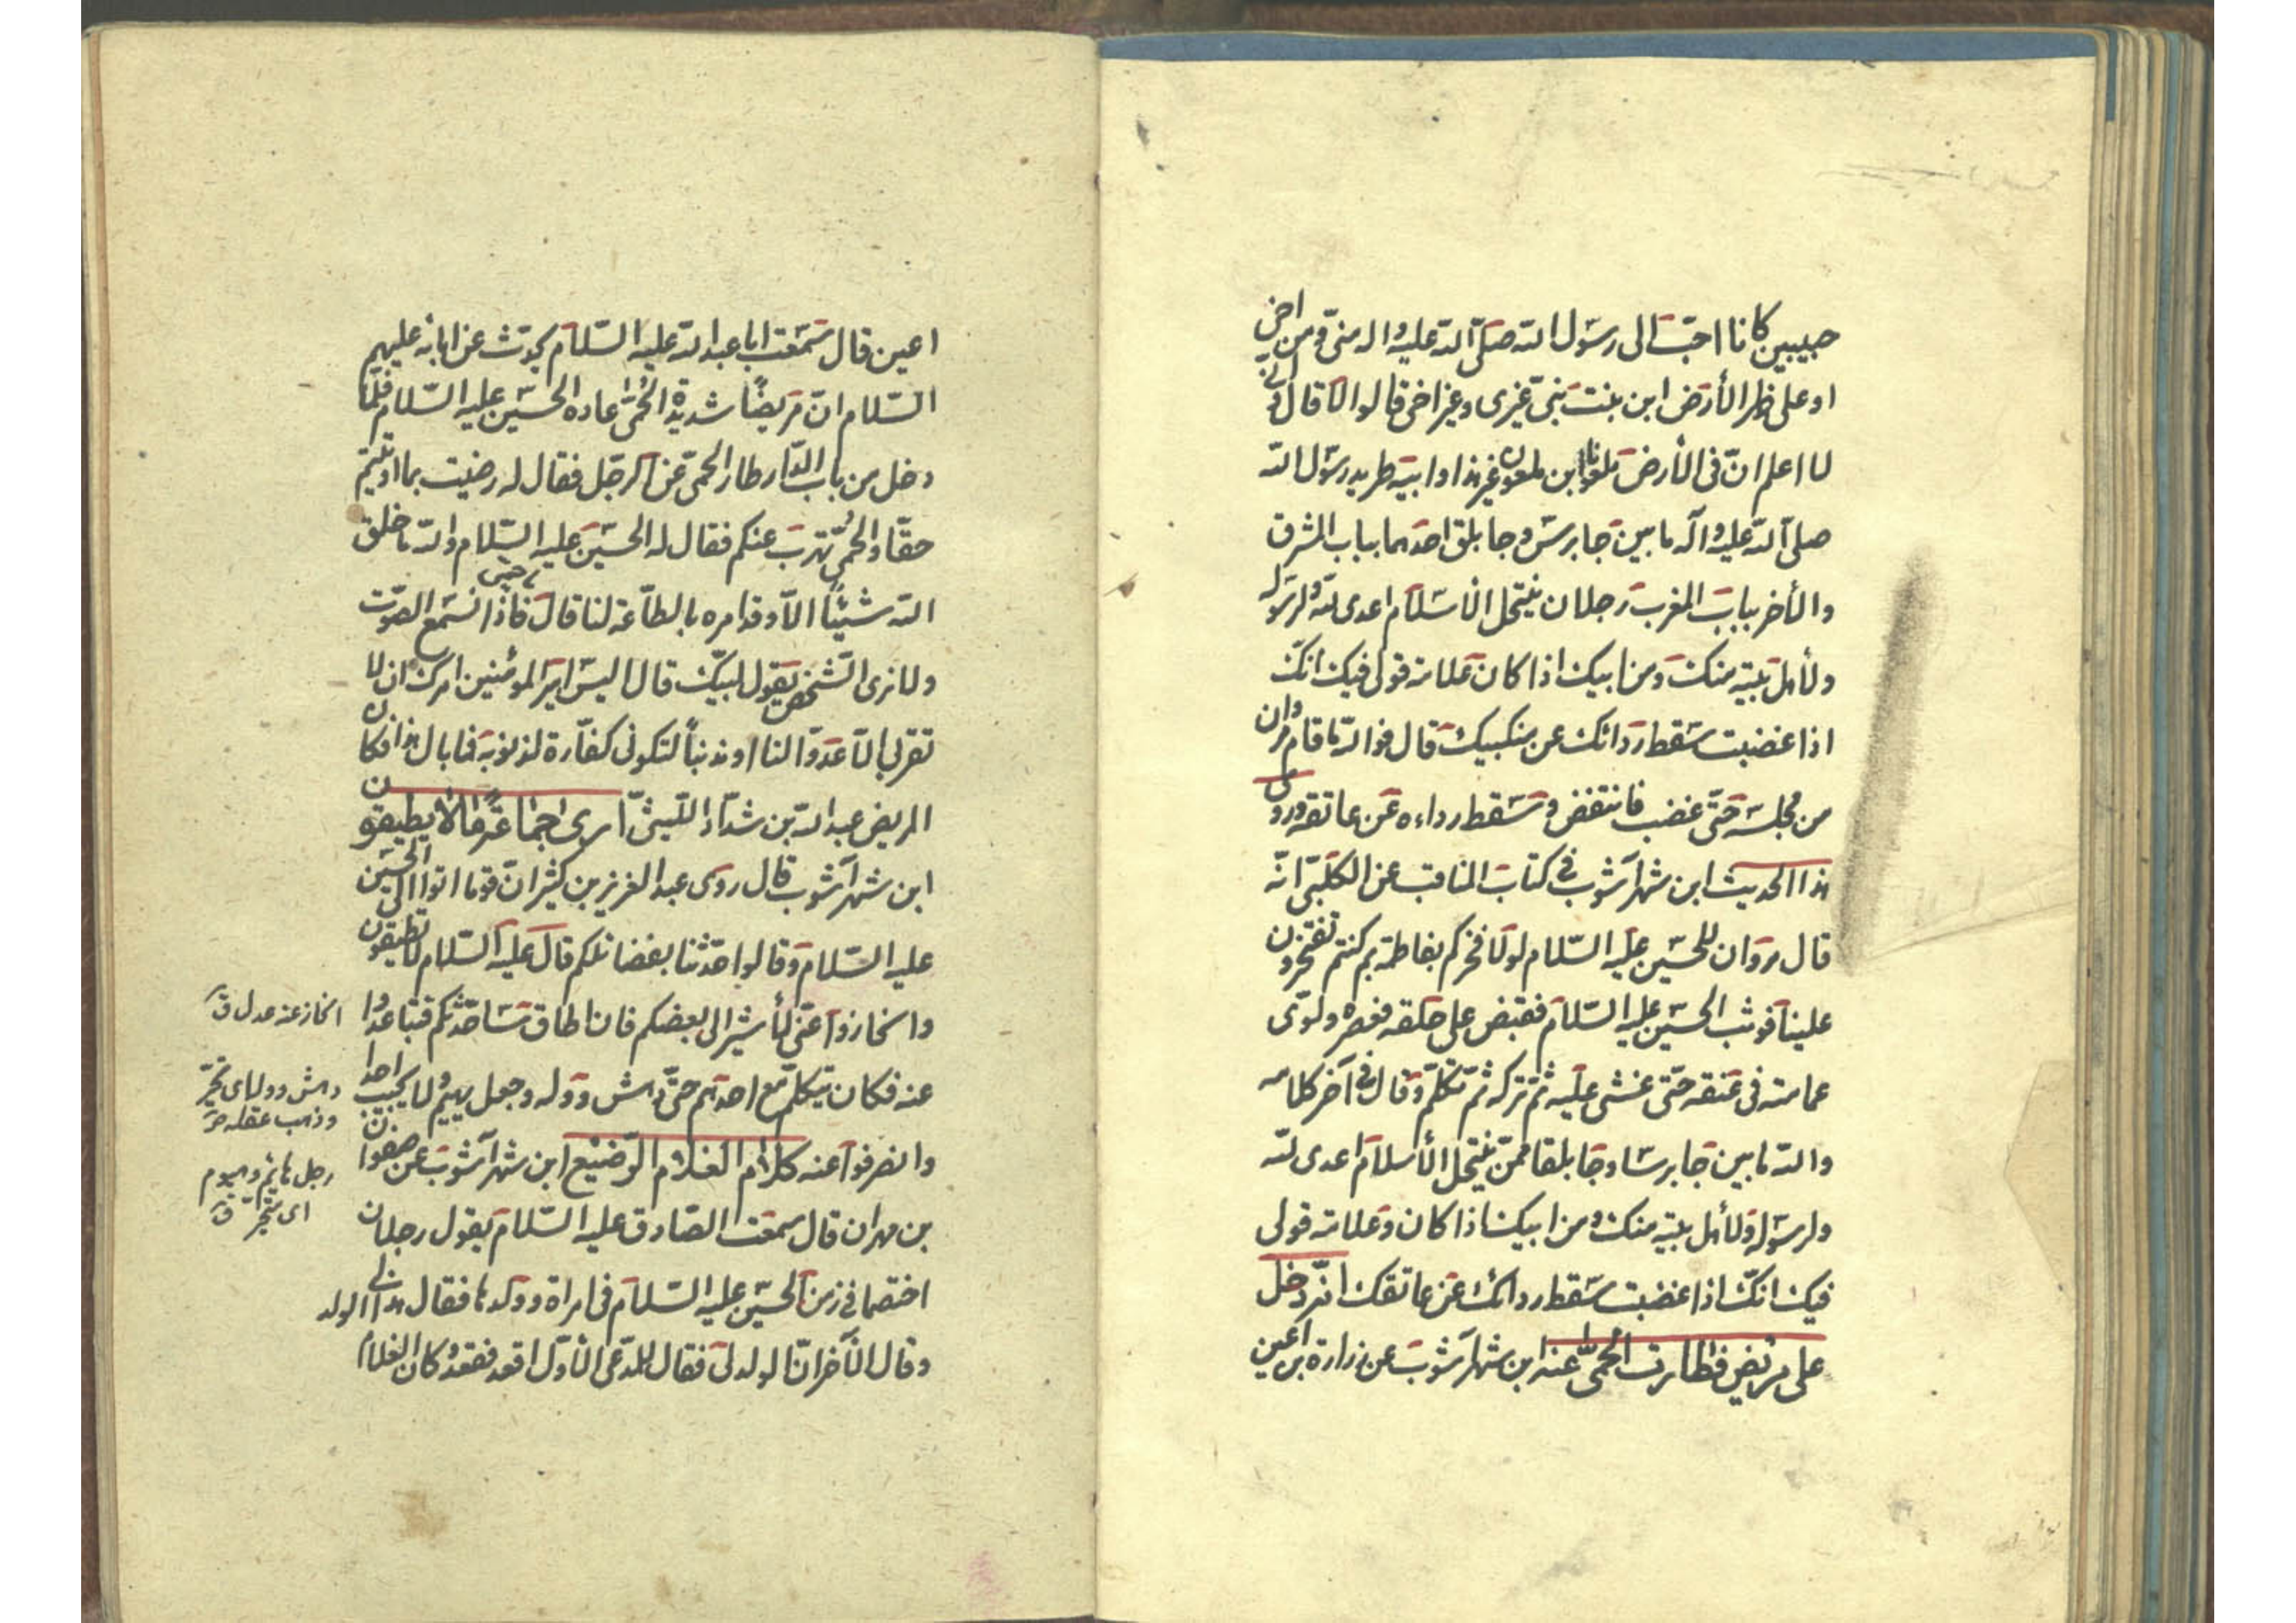 حبيبين كانا احبّ الى رسول الله صلّى الله عليه واله منّي ومن اخي
او على ظهر الأرض ابن بنت نبيّ غيري وغير اخي قالوا لا قال وانّي
لا اعلم انّ في الأرض ملعونا ابن ملعون غير هذا وابيه طريد رسول الله
صلّى الله عليه وآله ما بين جابرس وجابلق احدهما بباب المشرق
والأخر بباب المغرب رجلان ينتحل الأسلام اعدى لله ولرسوله
ولأهل بيته منك ومن ابيك اذا كان علامة قولي فيك انك
اذا غضبت سقط رداؤك عن منكبيك قال فوالله ما قام مروان
من مجلسه حتّى غضب فانتفض وسقط رداءه عن عاتقه وروى
هذا الحديث ابن شهرآشوب في كتاب المناقب عن الكلبيّ انّه
قال مروان للحسين عليه السّلام لولا فخركم بفاطمة بم كنتم تفتخرون
علينا فوثب الحسين عليه السّلام فقبض على حلقه فعصره ولوّى
عمامته في عنقه حتّى غشي عليه ثمّ تركه ثمّ تكلّم وقال في آخر كلامه
والله ما بين جابرسا وجابلقا ممّن ينتحل الأسلام اعدى لله
ولرسوله ولأهل بيته منك ومن ابيك اذا كان وعلامة قولي
فيك انّك اذا غضبت سقط رداؤك عن عاتقك انّه دخل
على مريض فطارت الحمّى عنه ابن شهرآشوب عن زرارة بن اعين
اعين قال سمعت ابا عبد الله عليه السّلام يحدّث عن ابائه عليهم
السّلام انّ مريضًا شديدة الحمّى عاده الحسين عليه السّلام فلمّا
دخل من باب الدّار طار الحمّى عن الرجل فقال له رضيت بما اوتيتم
حقّا والحمّى تهرب عنكم فقال له الحسين عليه السّلام والله ما خلق
الله شيئًا الّا وقد امره بالطّاعة لنا قال فاذا نسمع الصّوت
ولا نرى الشّخص يقول لبيّك قال اليس امير المؤمنين امرك ان لا
تقربي الّا عدوّا لنا او مذنبًا لتكوني كفّارة لذنوبه فما بال هذا فكان
المريض عبد الله بن شدّاد اللّيثيّ ارى جماعةً مالا يطيقون
ابن شهرآشوب قال روى عبد العزيز بن كثير انّ قوما اتوا الى الحسين
عليه السّلام وقالوا حدّثنا بفضائلكم قال عليه السّلام لا تطيقون
وانحازوا عنّي لأشير الى بعضكم فان اطاق ساحدّثكم فتباعدوا
عنه فكان يتكلّم مع احدهم حتّى دهش ووله وجعل يهيم ولا يجيب احدا
وانصرفوا عنه كلام الغلام الرّضيع ابن شهرآشوب عن صفوان
بن مهران قال سمعت الصّادق عليه السّلام يقول رجلان
اختصما في زمن الحسين عليه السّلام في امرأة وولدها فقال هذا الولد لي
وقال الآخر انّ الولد لي فقال للمدّعي الأوّل اقعد فقعد وكان الغلام
انحاز عنه عدل ق
دهش ووله اى تحيّر
وذهب عقله ص
رجل هائم وهيوم
اى متحيّر ق